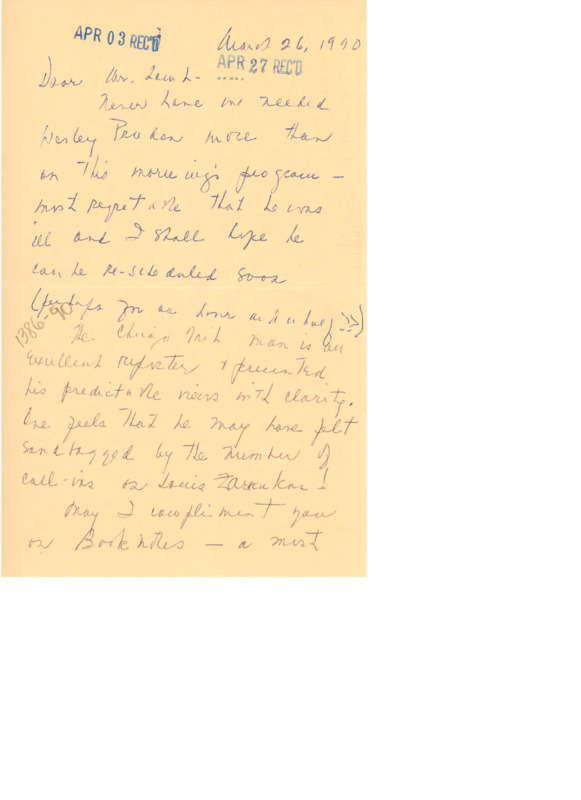 APR 03 REC'D
March 26, 1990
APR 27 REC'D
Dear Mr. Lamb -
Never have we needed
Wesley Pruden more than
on this morning's program -
most regrettable that he was
ill and I shall hope he
can be re-scheduled soon
(perhaps for an hour and a half)
1386-90
The Chicago Trib man is an
excellent reporter & presented
his predictable views with clarity.
One feels that he may have felt
sandbagged by the number of
call-ins on Louis Farrakan!
May I compliment you
on Booknotes - a most